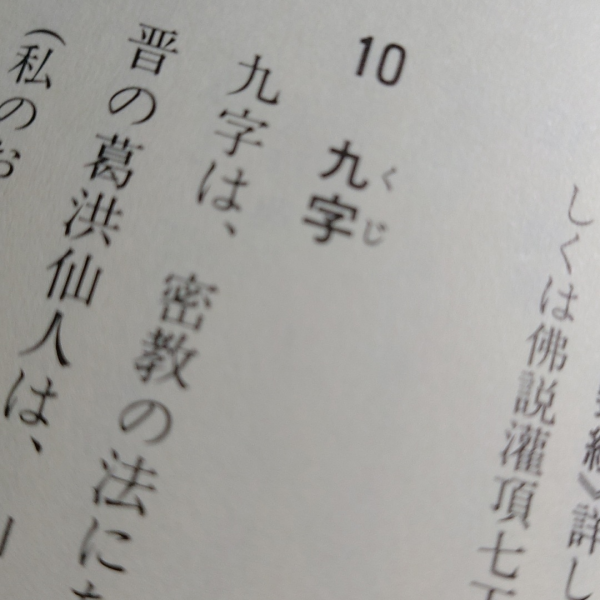 経》詳し
しくは佛説灌頂七
10 九字
くじ
九字は、密教の法に
晋の葛洪仙人は、
(私のお